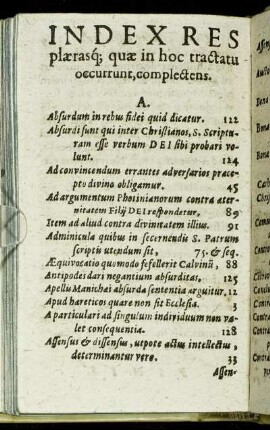 INDEX RES
plærasq; quæ in hoc tractatu
occurrunt, complectens.
A.
Absurdum in rebus fidei quid dicatur. 122
Absurdi sunt qui inter Christianos, S. Scriptu-
ram esse verbum DEI sibi probari vo-
lunt. 124
Ad convincendum errantes adversarios præce-
pto divino obligamur. 45
Ad argumentum Photinianorum contra æter-
nitatem Filij DEI respondetur, 89
Item ad aliud contra divinitatem illius. 91
Adminicula quibus in secernendis S. Patrum
scriptis utendum sit, 75. & seq.
Æquivocatio quomodo fefellerit Calvinū, 88
Antipodes dari negantium absurditas, 125
Apellis Manichæi absurda sententia arguitur. 12
Apud hæreticos quare non sit Ecclesia. 3
A particulari ad singulum individuum non va-
let consequentia. 128
Assensus & dissensus, utpote actus intellectus,
determinantur vero. 33
Assen-